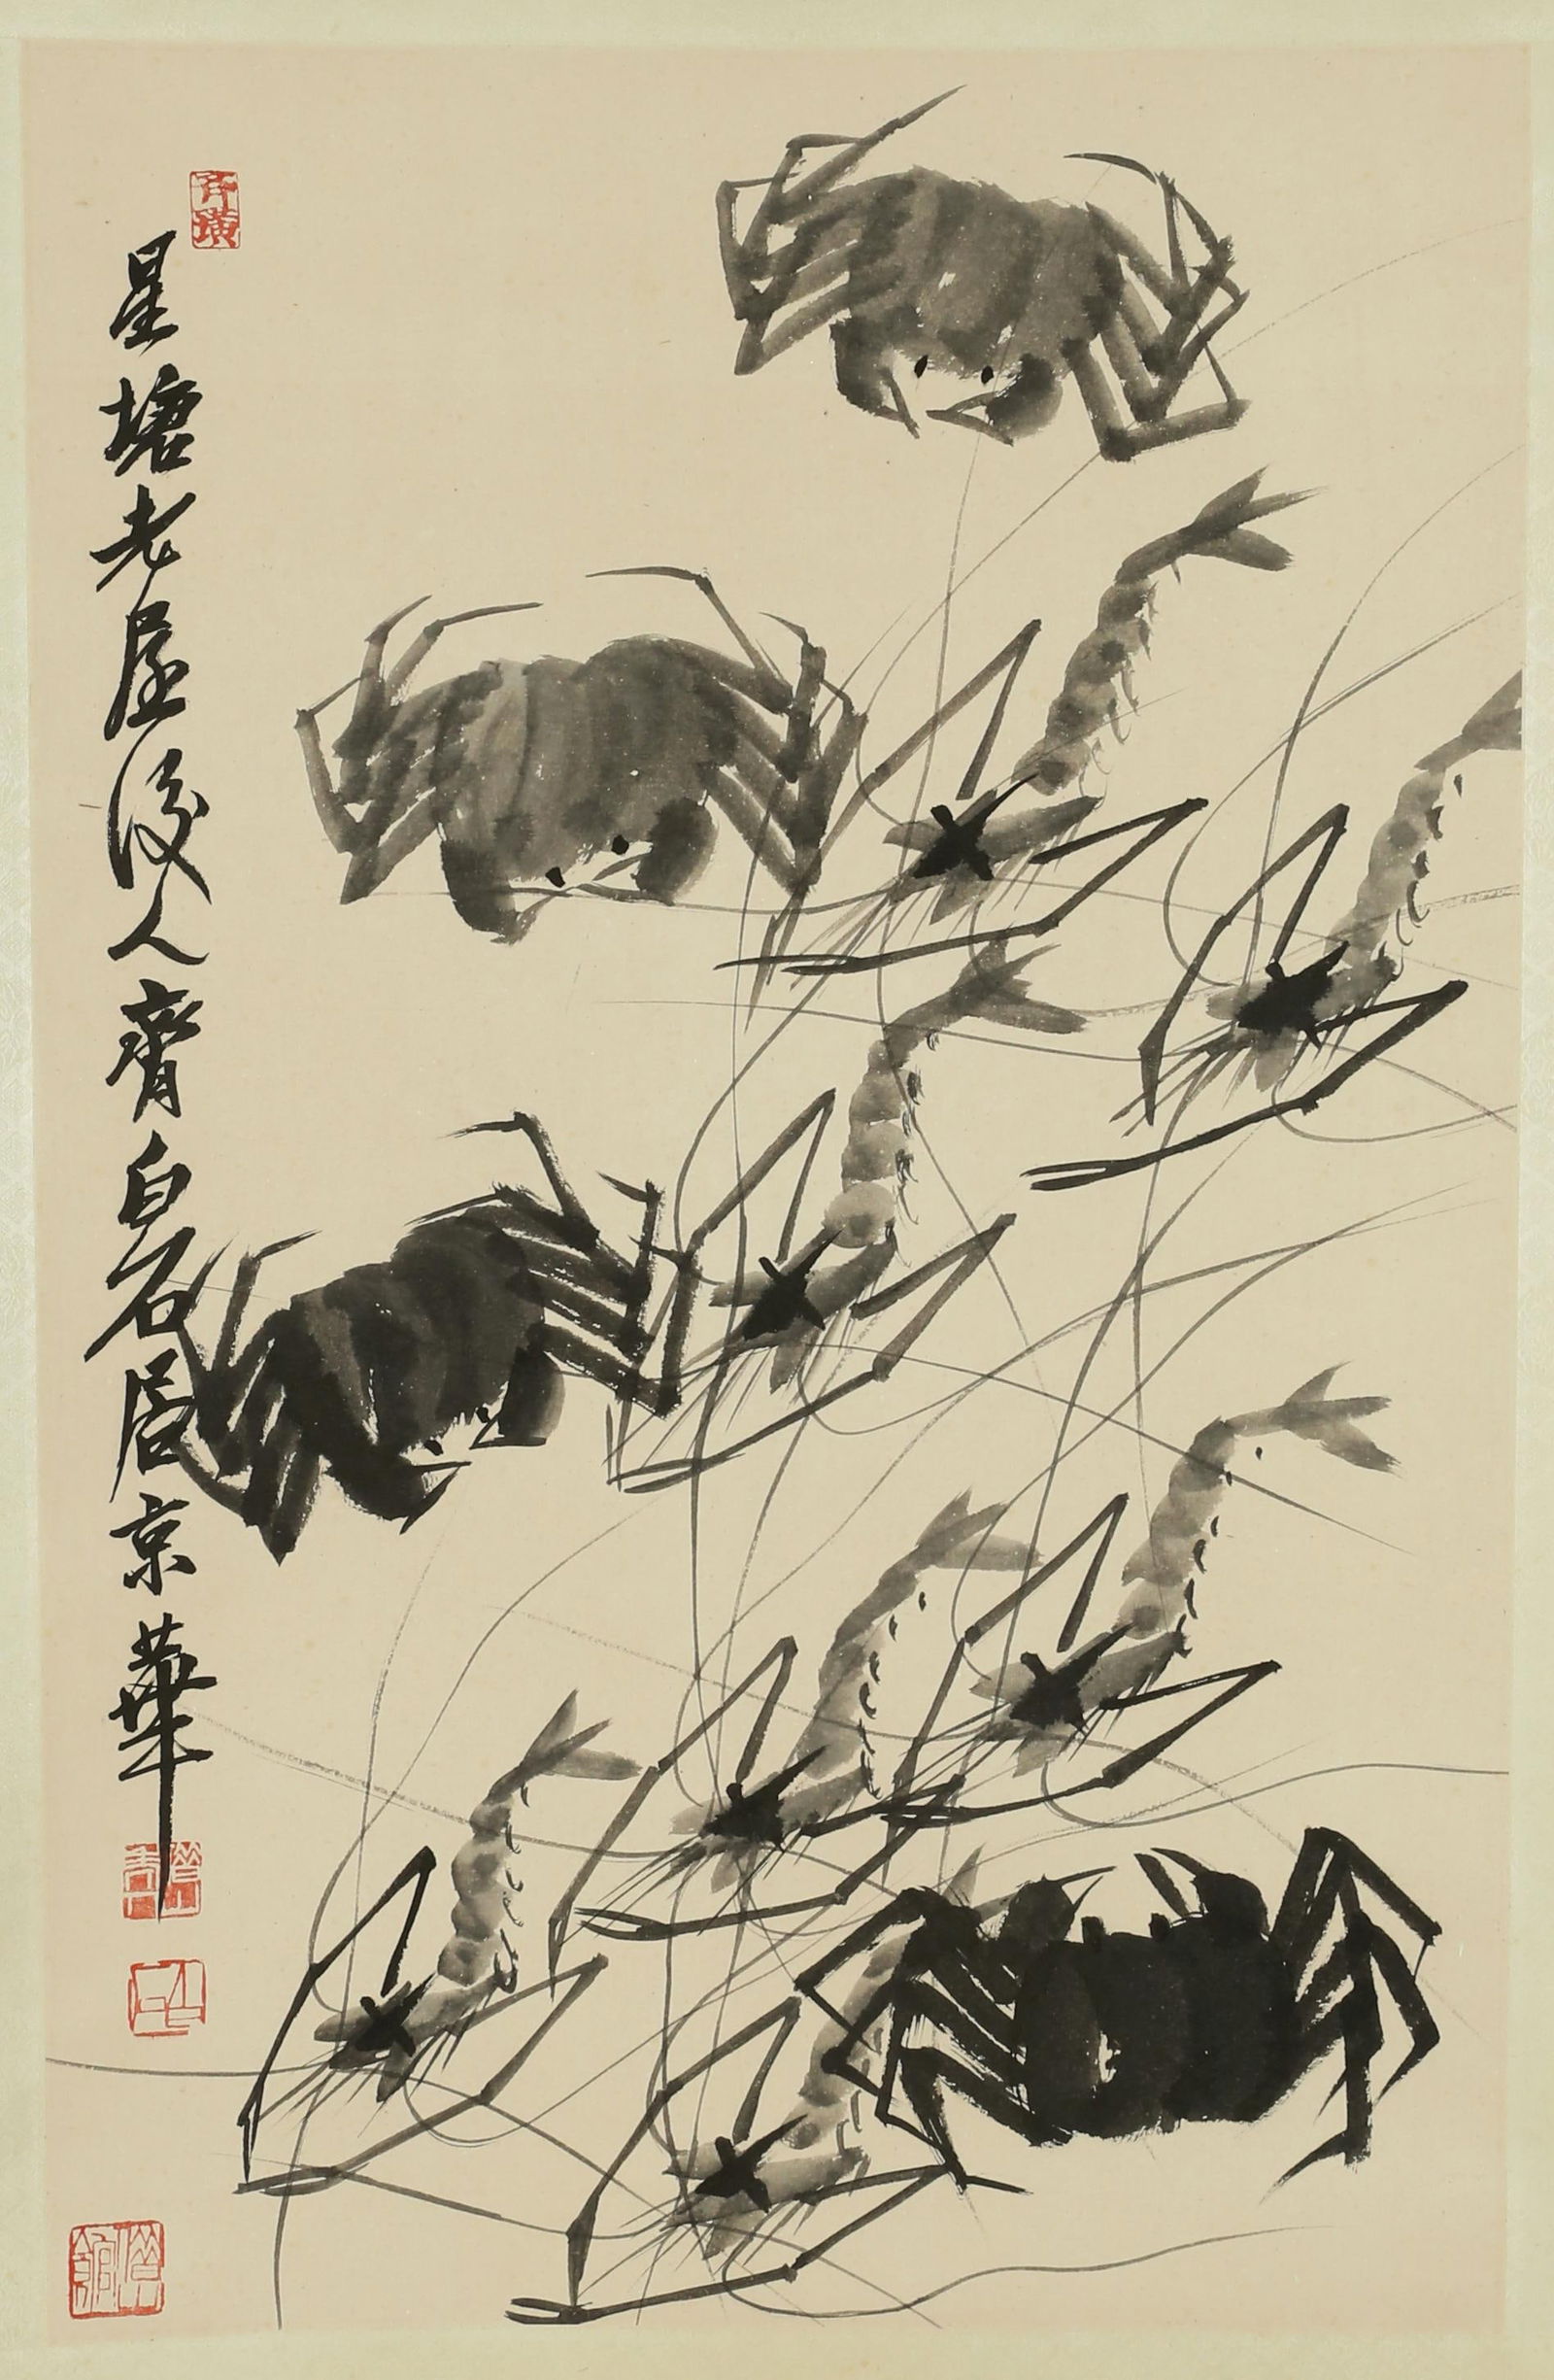 齊璜
星塘老屋後人齊白石居京華